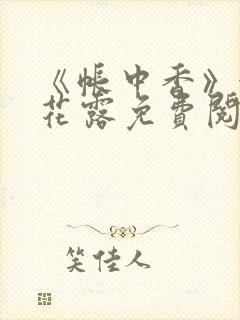 《帐中香》
花露免费阅
笑佳人